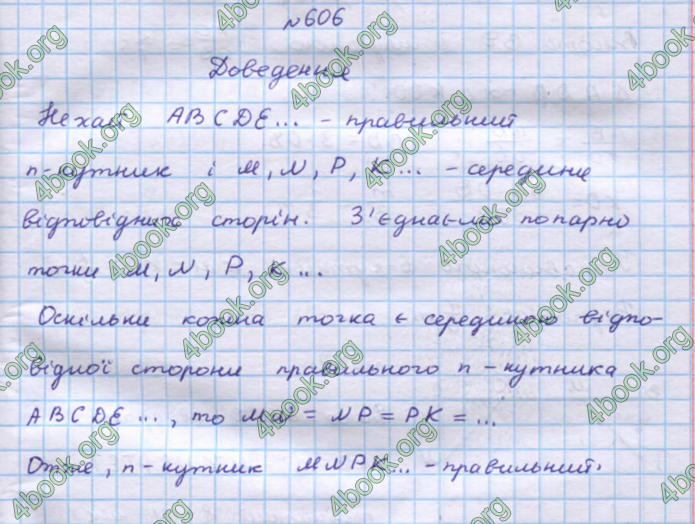 №606
Доведення
Нехай ABCDE... - правильний
n-кутник і M, N, P, K... - середини
відповідних сторін. З'єднаємо попарно
точки M, N, P, K ...
Оскільки кожна точка є серединою відпо-
відної сторони правильного n-кутника
ABCDE ..., то MN = NP = PK = ...
Отже, n-кутник MNPK... - правильний.